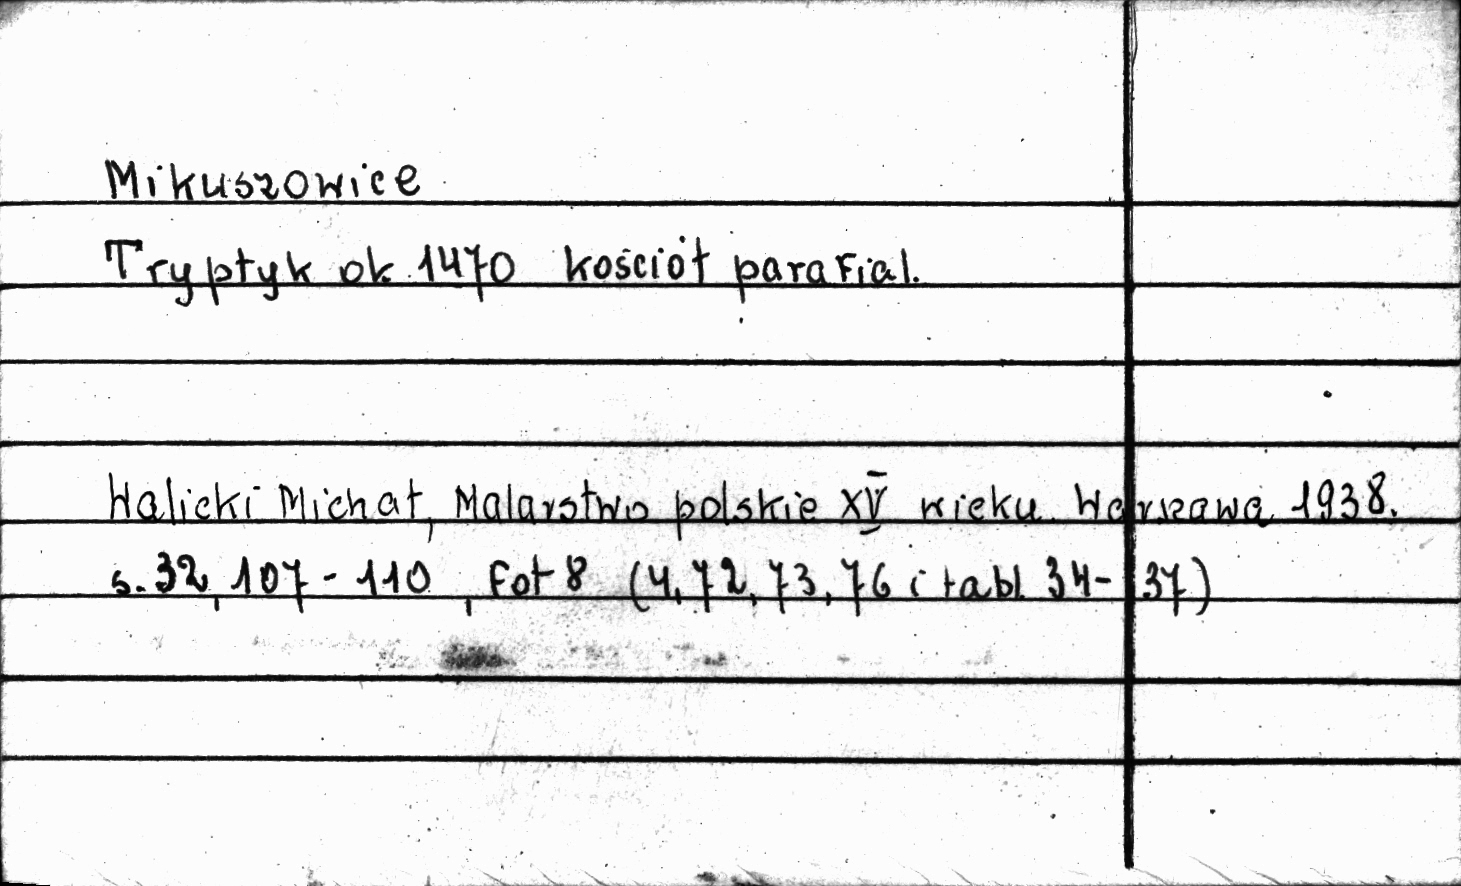 Mikuszowice
Tryptyk ok. 1470 kościół parafial.
Walicki Michał, Malarstwo polskie XV wieku. Warszawa 1938.
s. 32, 107-110, Fot 8 (4, 72, 73, 76 i tabl. 34-37)